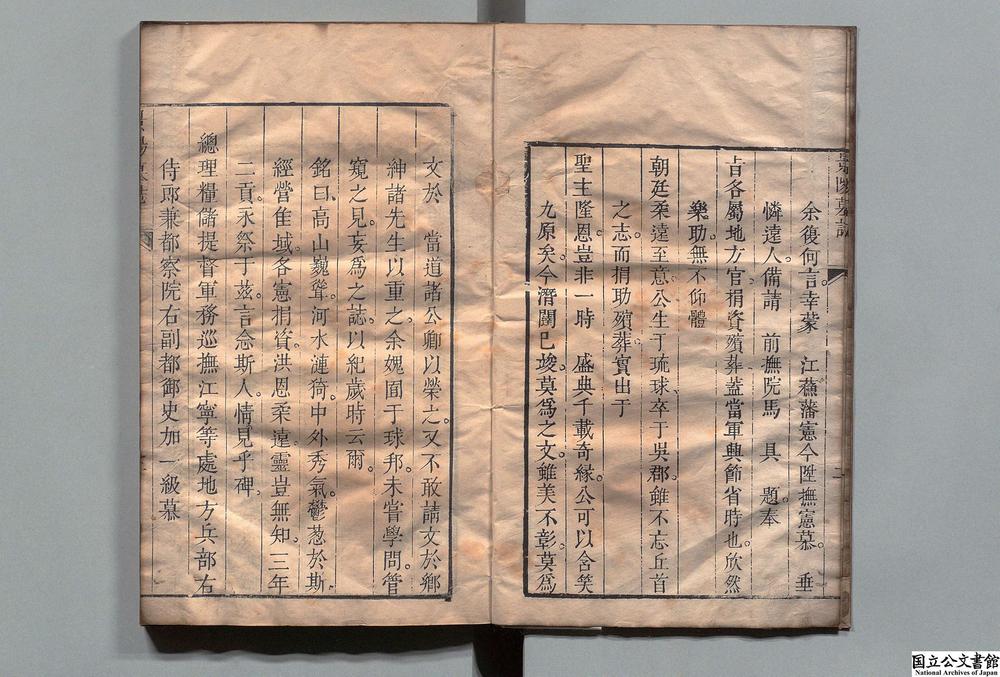 余復何言幸蒙　江蘓藩憲今陞撫憲慕。垂
憐遠人。備請　前撫院馬　具　題奉
旨各屬地方官捐資殯葬。蓋當軍興節省時也。欣然
樂助。無不仰體
朝廷柔遠至意。公生于琉球。卒于吳郡。雖不忘丘首
之志。而捐助殯葬。寔出于
聖主隆恩。豈非一時　盛典。千載奇縁。公可以含笑
九原矣。今濟闓已竣。莫爲之文。雖美不彰。莫爲
文於　當道諸公卿以榮之。又不敢請文於鄉
紳諸先生以重之。余媿囿于球邦。未嘗學問。管
窺之見。妄爲之誌。以紀歲時云爾。
銘曰。高山巍聳。河水漣猗。中外秀氣。鬱葱於斯
經營隹域。各憲捐資。洪恩柔遠。靈豈無知。三年
二貢。永祭于茲。言念斯人。情見乎碑。
總理糧儲提督軍務巡撫江寧等處地方兵部右
侍郎兼都察院右副都御史加一級慕
國立公文書館
National Archives of Japan